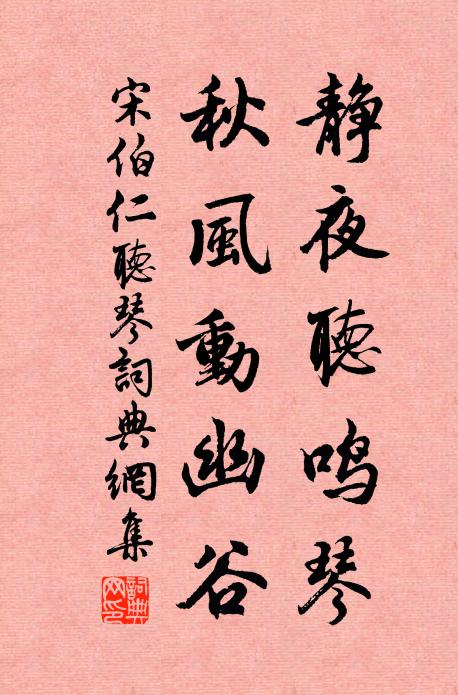 静夜聽鳴琴
秋風動幽谷
宋伯仁聽琴詞典網集
詞典
网印